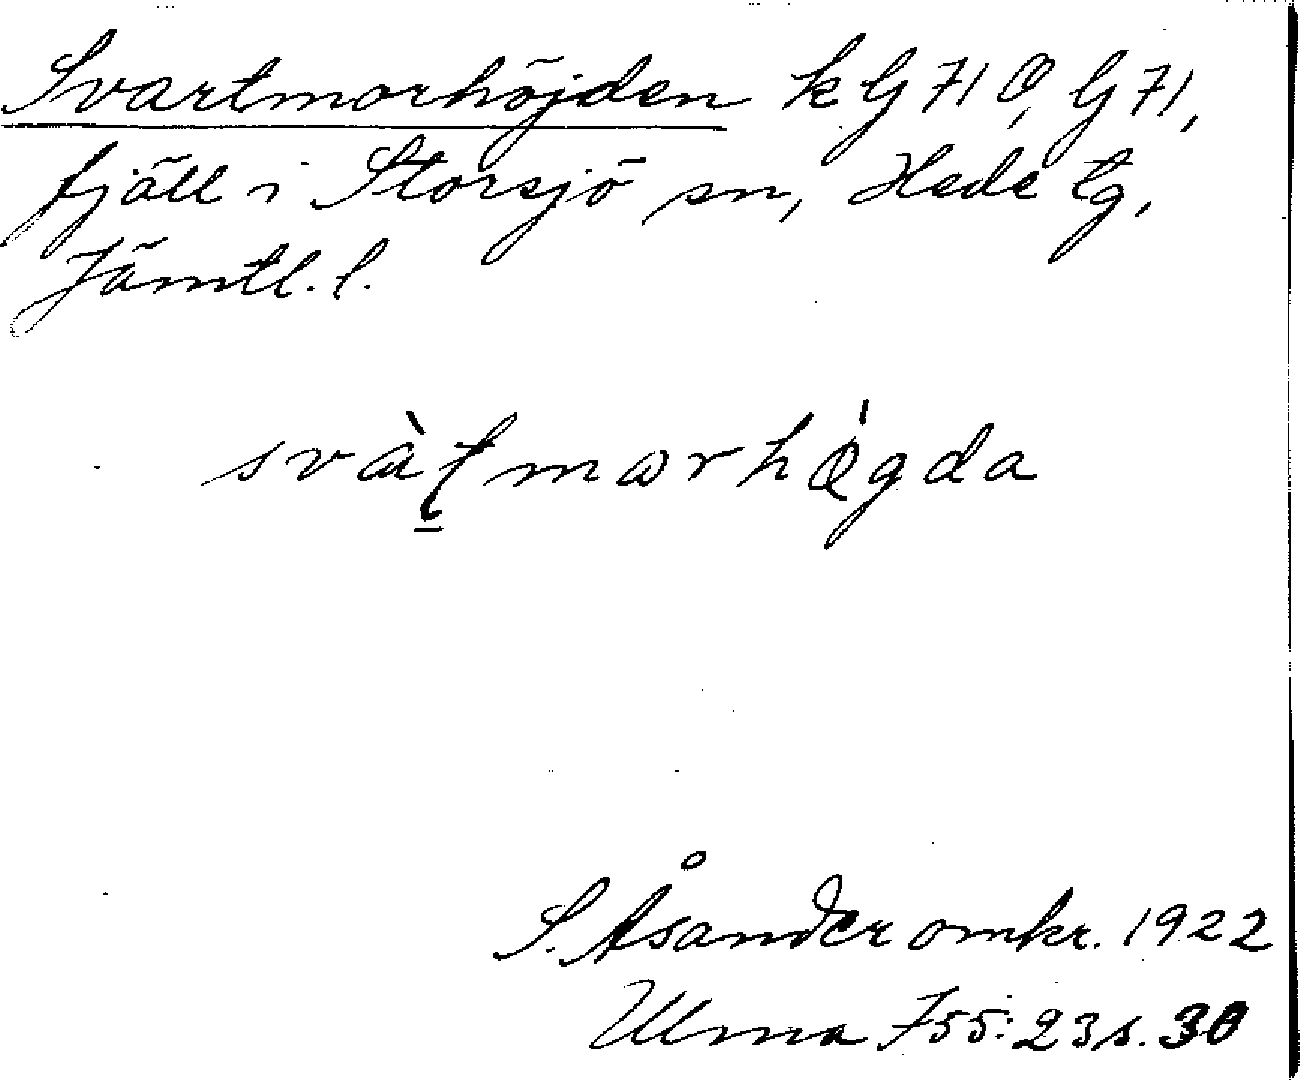 Svartmorhöjden k G 71 Ö, G 71,
fjäll i Storsjö sn, Hede tg,
Jämtl. l.
svàtmωrhø̀gda
S. Åsander omkr. 1922
Ulma 755:23 s. 30